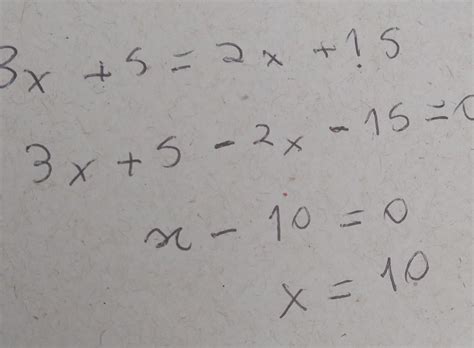 3x + 5 = 2x + 15
3x + 5 - 2x - 15 = 0
x - 10 = 0
x = 10